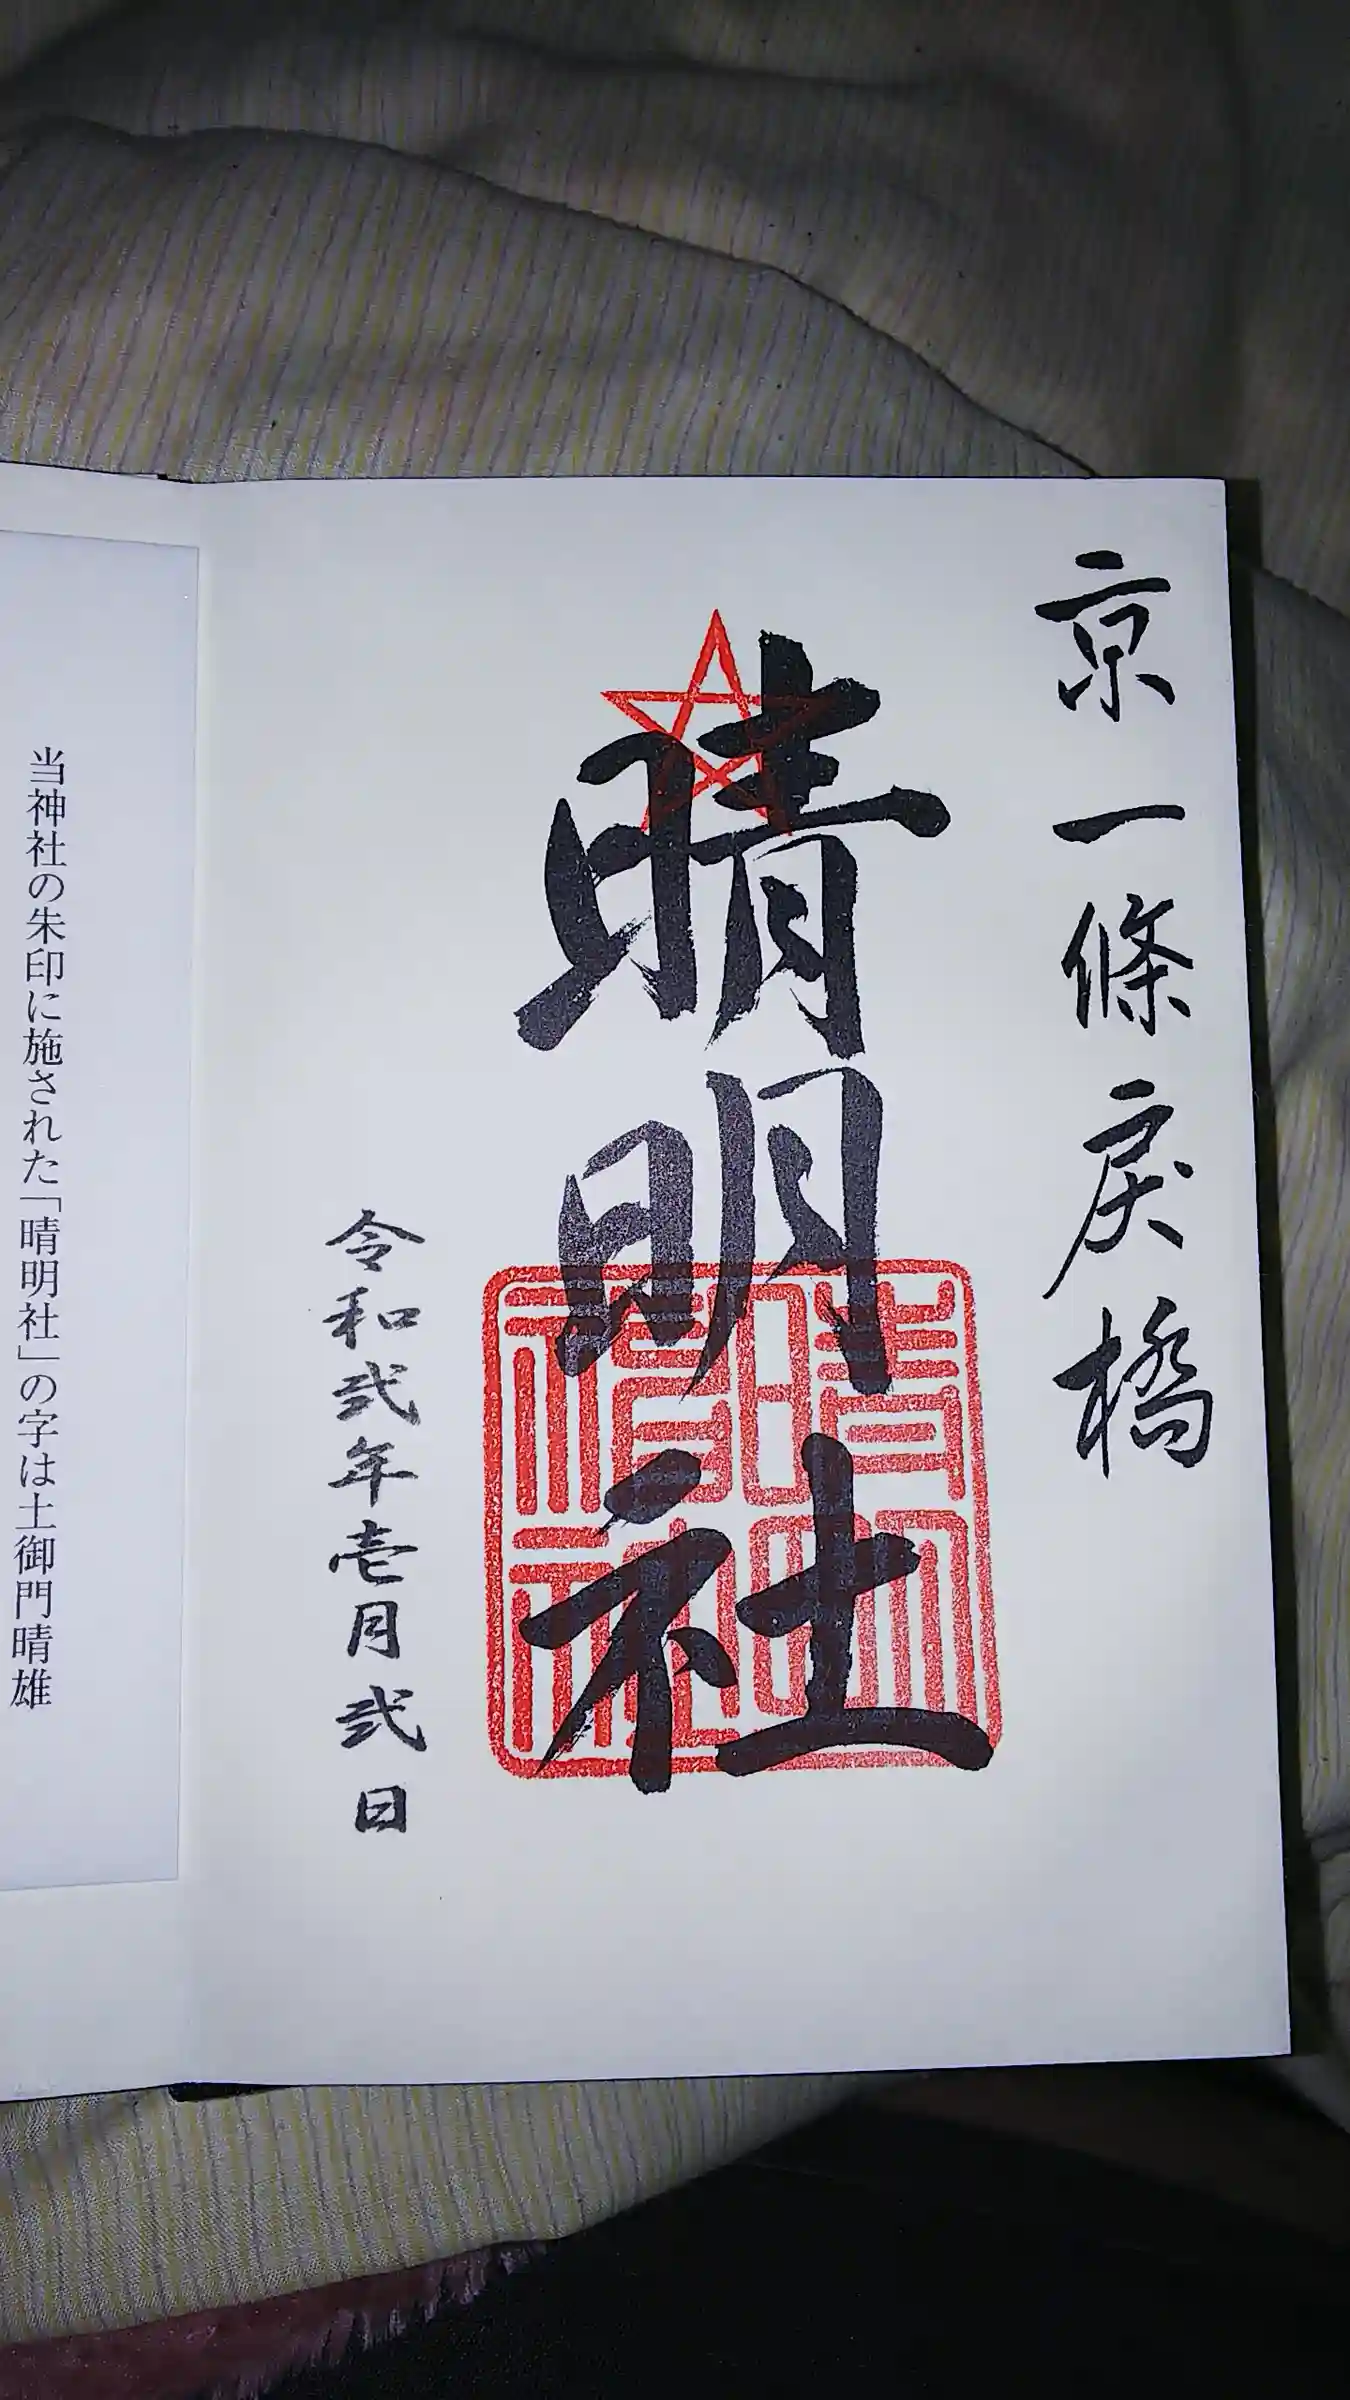 京一條戻橋
晴明社
晴明神社
令和弐年壱月弐日
当神社の朱印に施された「晴明社」の字は土御門晴雄